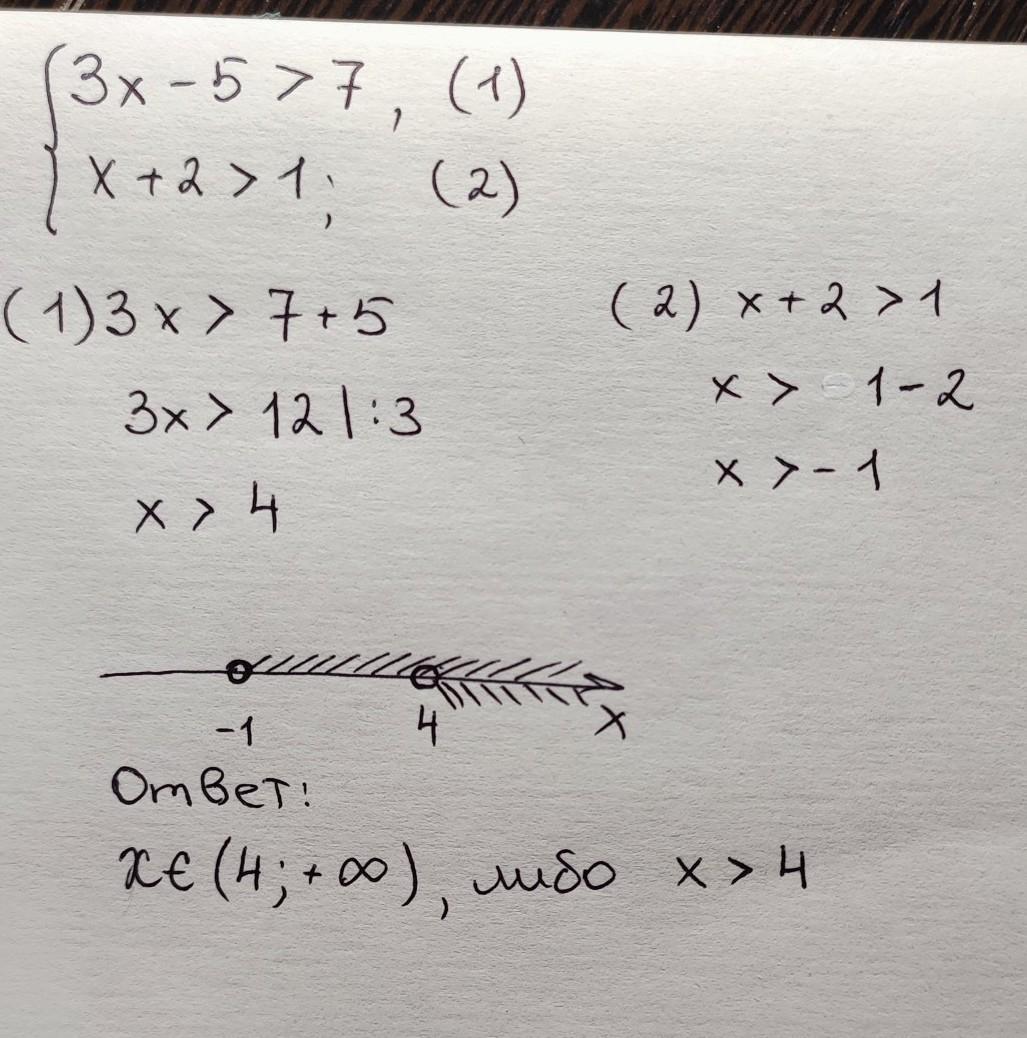 3x - 5 > 7, (1)
x + 2 > 1; (2)
(1) 3x > 7 + 5
3x > 12 | : 3
x > 4
(2) x + 2 > 1
x > 1 - 2
x > - 1
-1 4 x
Ответ:
x ∈ (4; + ∞), либо x > 4